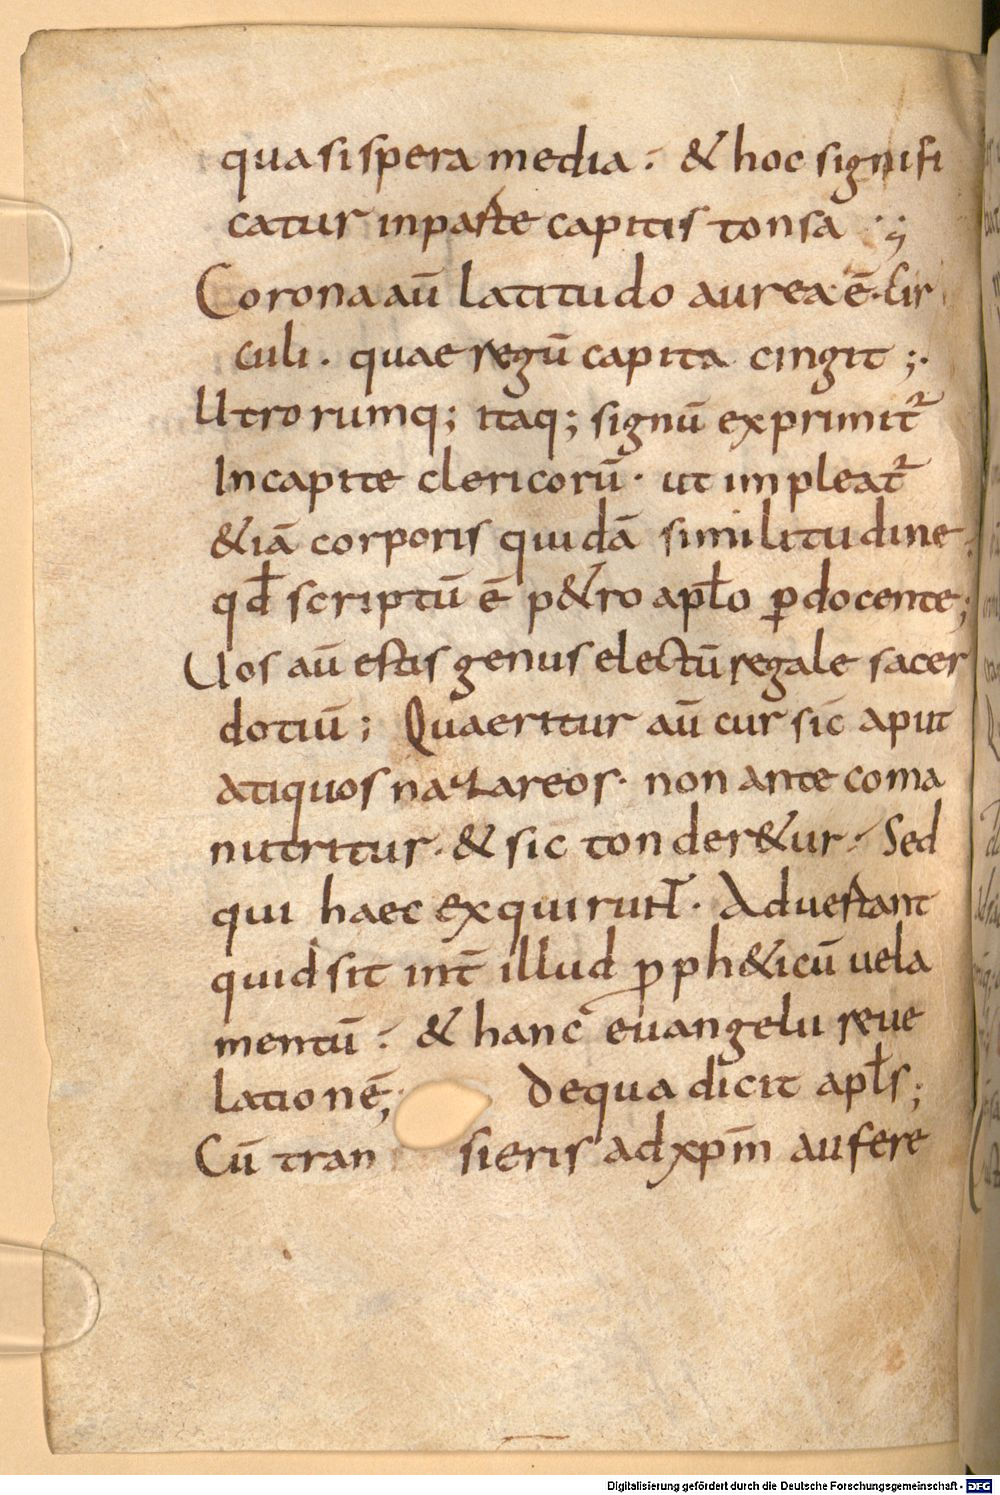 quasi spera media · & hoc signifi
catur inparte capitis tonsa ;
Corona aū latitudo aurea ē · cir
culi · quae regū capita cingit ;
Utrorumq; itaq; signū exprimit᷑
In capite clericorū · ut impleat᷑
&iā corporis quidā similitudine ·
qđ scriptū ē p&ro apło ꝑdocente ;
Uos aū estis genus electū regale sacer
dotiū ; Quaeritur aū cur sic aput
atiquos nazareos · non ante coma
nutritur · & sic tonder&ur · Sed
qui haec exquirunt · Aduertant
quid sit int̄ illud ꝓph&icū uela
mentū · & hanc euangelii reue
lationē ; De qua dicit apłs ;
Cū transieris ad xp̄m aufere
Digitalisierung gefördert durch die Deutsche Forschungsgemeinschaft - DFG